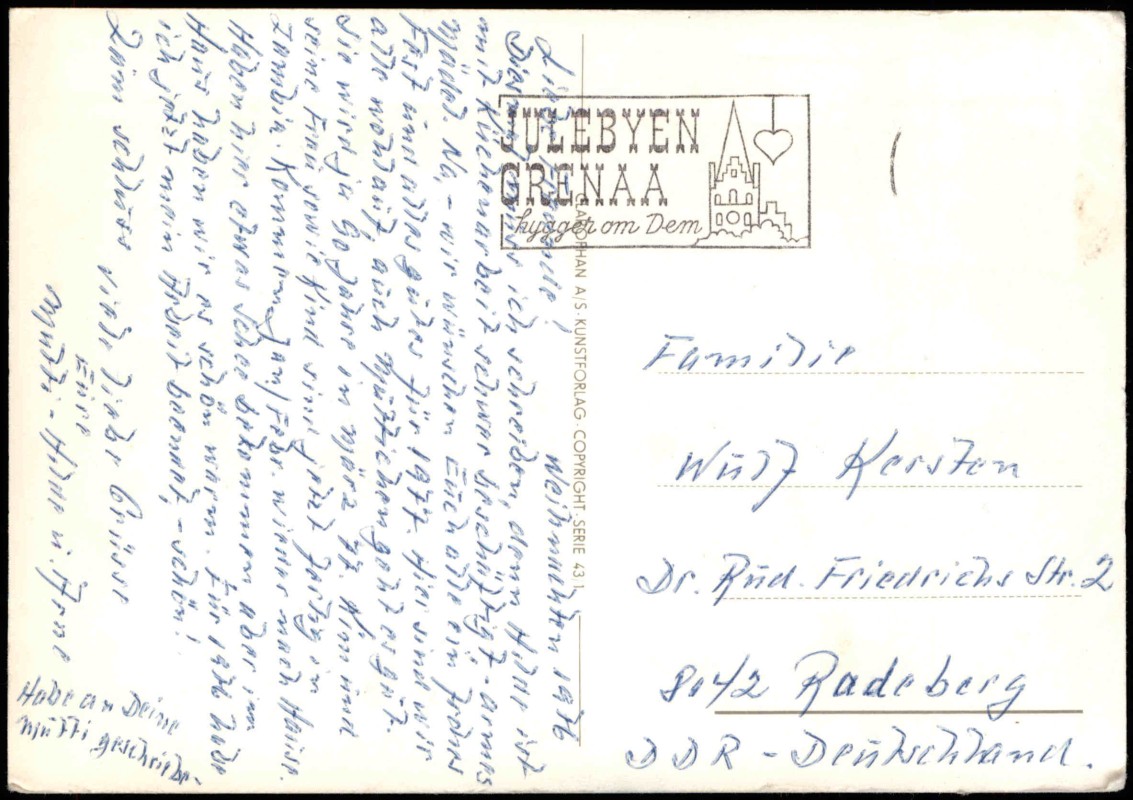 Weihnachten 1976
Liebe Familie!
Diesmal muss ich schreiben, denn Hilde ist
mit Küchenarbeit schwer beschäftigt - armes
Mädel. Na, - wir wünschen Euch alle ein frohes
Fest und alles gutes für 1977. Hier sind wir
alle wohlauf, auch Muttichen geht es gut.
Sie wird ja 90 Jahre in März 77. Kim und
seine Frau sowie Kind sind jetzt fertig in
Zambia. Kommen Jan/Febr. wieder nach Hause.
Haben hier etwas Schee bekommen aber im
Haus haben wir es schön warm. Für 1976 habe
ich jetzt mein Arbeit beendet, - schön!
Zum schluss viele liebe Grüsse
Eure
Mutti - Hilde u. Arne
Habe an Deine
Mutti geschrieben
JULEBYEN
GRENAA
hygger om Dem
CLAUSOPHAN A/S · KUNSTFORLAG · COPYRIGHT · SERIE 43/1
Familie
Wulf Kersten
Dr. Rud. Friedrichs Str. 2
8142 Radeberg
DDR - Deutschland.